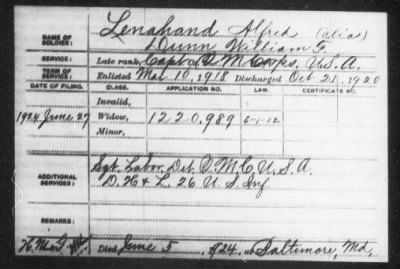 NAME OF SOLDIER: Lenahand Alfred (alias)
Dunn William F.
SERVICE: Late rank, Capt Q M Corps, U.S.A.
TERM OF SERVICE: Enlisted Mar 10, 1918 Discharged Oct 21, 1920
DATE OF FILING. CLASS. APPLICATION NO. LAW. CERTIFICATE NO.
Invalid,
1924 June 27 Widow, 1220,989
Minor,
ADDITIONAL SERVICES: Sgt. Labor. Det. Q. M. C. U. S. A.
26 U. S. Inf
REMARKS:
Died June 5, 1924, at Baltimore, Md.